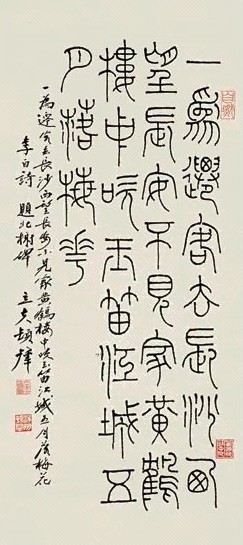 一為遷客去長沙西
望長安不見家黃鶴
樓中吹玉笛江城五
月落梅花
一為遷客去長沙西望長安不見家黃鶴樓中吹玉笛江城五月落梅花
李白詩 題北榭碑 立